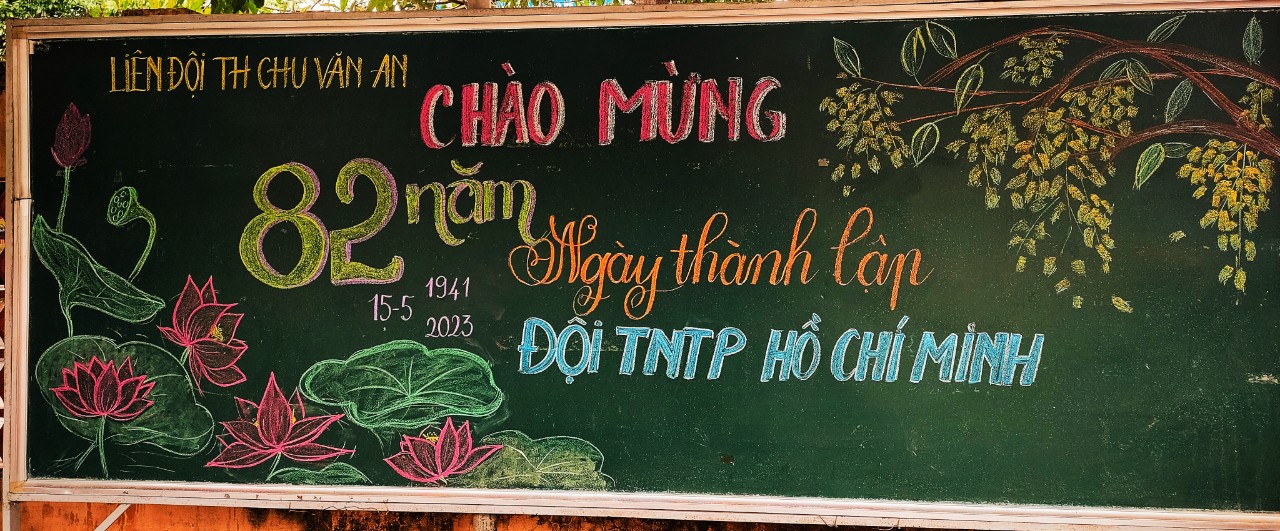 LIÊN ĐỘI TH CHU VĂN AN
CHÀO MỪNG
82 năm
15-5 1941
2023
Ngày thành lập
ĐỘI TNTP HỒ CHÍ MINH